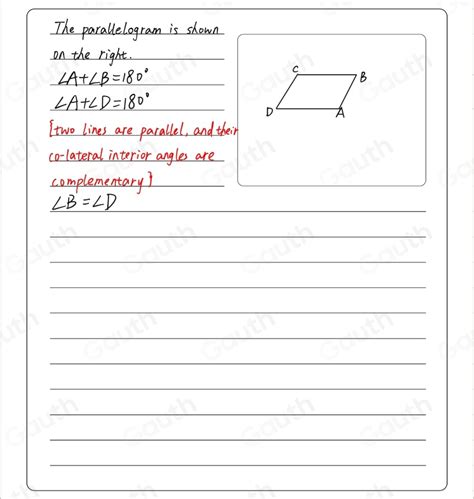 The parallelogram is shown
on the right.
∠A+∠B=180°
∠A+∠D=180°
[two lines are parallel, and their
co-lateral interior angles are
complementary]
∠B=∠D
C
B
D
A
Gauth